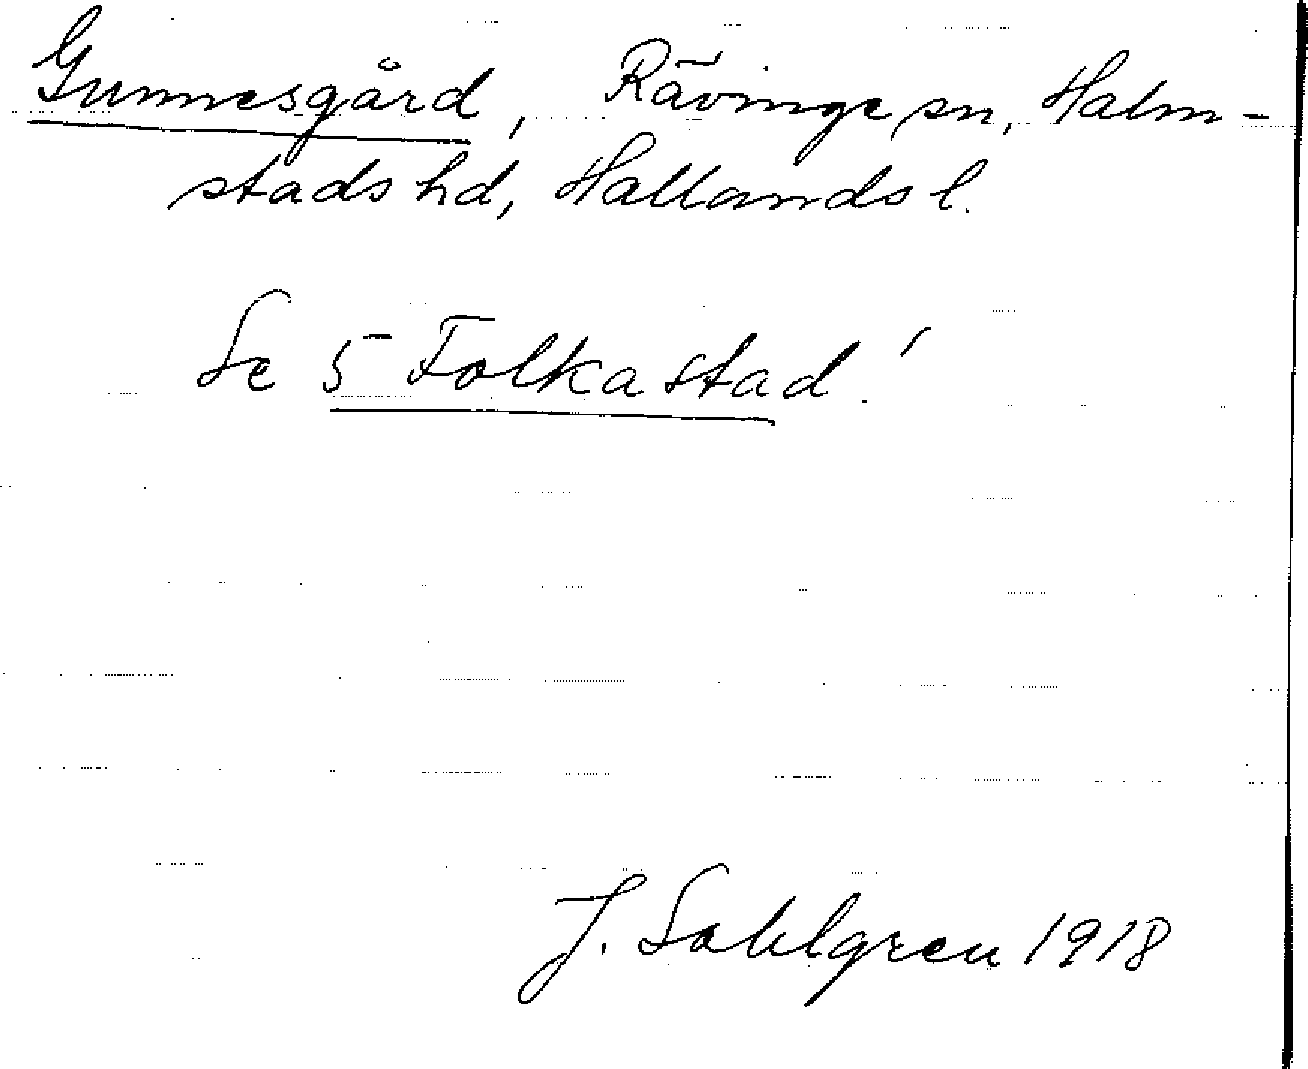 Gunnesgård, Rävinge sn, Halm-
stads hd, Hallands l.
Se 5 Folkastad!
J. Sahlgren 1918